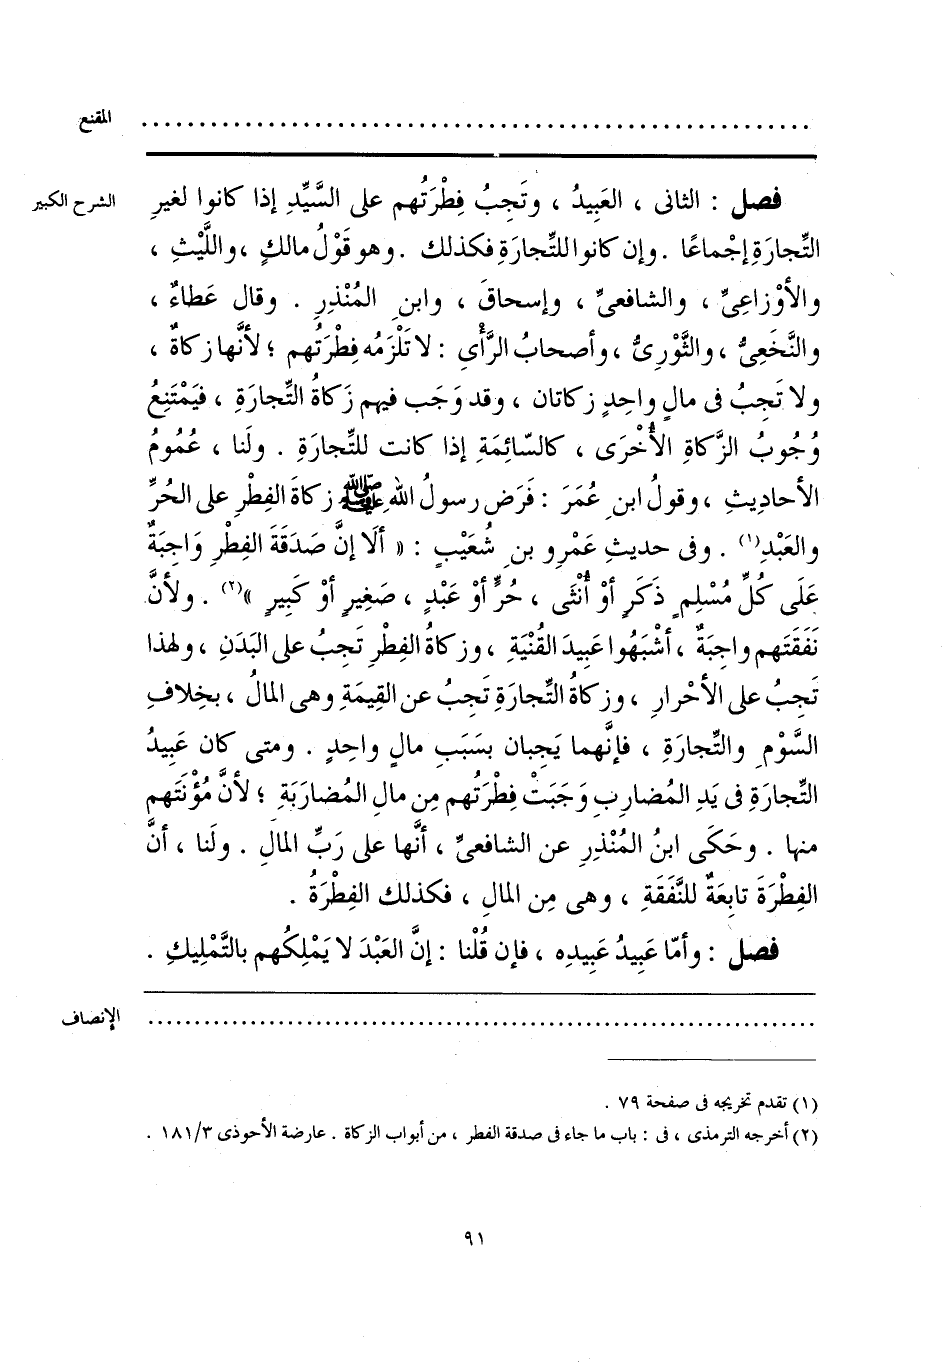 المقنع ................................................................
الشرح الكبير
فصل : الثانى ، العَبِيدُ ، وتَجِبُ فِطْرَتُهم على السَّيِّدِ إذا كانوا لغيرِ
التِّجارَةِ إجْماعًا . وإن كانوا للتِّجارَةِ فكذلك . وهو قَوْلُ مالكٍ ، واللَّيْثِ ،
والأوْزاعِىِّ ، والشافعىِّ ، وإسحاقَ ، وابنِ المُنْذِرِ . وقال عَطاءٌ ،
والنَّخَعِىُّ ، والثَّوْرِىُّ ، وأصحابُ الرَّأْىِ : لا تَلْزَمُه فِطْرَتُهم ؛ لأنَّها زكاةٌ ،
ولا تَجِبُ فى مالٍ واحِدٍ زكاتان ، وقد وَجَب فيهم زَكاةُ التِّجارَةِ ، فيَمْتَنِعُ
وُجُوبُ الزَّكاةِ الأُخْرَى ، كالسّائِمَةِ إذا كانت للتِّجارَةِ . ولَنا ، عُمُومُ
الأحادِيثِ ، وقولُ ابنِ عُمَرَ : فَرَض رسولُ اللهِ ﷺ زكاةَ الفِطْرِ على الحُرِّ
والعَبْدِ(١) . وفى حديثِ عَمْرِو بنِ شُعَيْبٍ : « ألَا إنَّ صَدَقَةَ الفِطْرِ وَاجِبَةٌ
عَلَى كُلِّ مُسْلِمٍ ذَكَرٍ أوْ أُنْثَى ، حُرٍّ أوْ عَبْدٍ ، صَغِيرٍ أوْ كَبِيرٍ »(٢) . ولأنَّ
نَفَقَتَهم واجِبَةٌ ، أشْبَهُوا عَبِيدَ القُنْيَةِ ، وزكاةُ الفِطْرِ تَجِبُ على البَدَنِ ، ولهذا
تَجِبُ على الأحْرارِ ، وزكاةُ التِّجارَةِ تَجِبُ عن القِيمَةِ وهى المالُ ، بخِلافِ
السَّوْمِ والتِّجارَةِ ، فإنَّهما يَجِبان بسَبَبِ مالٍ واحِدٍ . ومتى كان عَبِيدُ
التِّجارَةِ فى يَدِ المُضارِبِ وَجَبَتْ فِطْرَتُهم مِن مالِ المُضارَبَةِ ؛ لأنَّ مُؤْنَتَهم
منها . وحَكَى ابنُ المُنْذِرِ عن الشافعىِّ ، أنَّها على رَبِّ المالِ . ولَنا ، أنَّ
الفِطْرَةَ تابِعَةٌ للنَّفَقَةِ ، وهى مِن المالِ ، فكذلك الفِطْرَةُ .
فصل : وأمّا عَبِيدُ عَبِيدِه ، فإن قُلْنا : إنَّ العَبْدَ لا يَمْلِكُهم بالتَّمْلِيكِ .
الإنصاف ................................................................
(١) تقدم تخريجه فى صفحة ٧٩ .
(٢) أخرجه الترمذى ، فى : باب ما جاء فى صدقة الفطر ، من أبواب الزكاة . عارضة الأحوذى ٣/١٨١ .
٩١